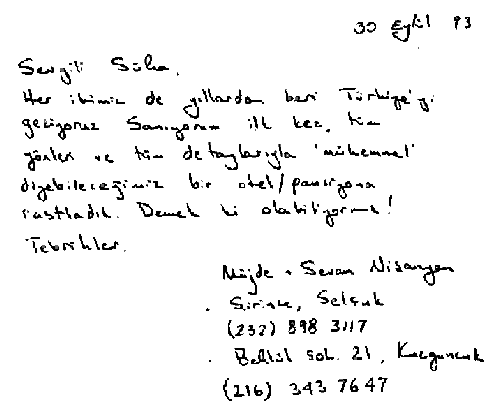 30 Eylül 93
Sevgili Süha,
Her ikimiz de yıllardan beri Türkiye'yi
geziyoruz. Sanıyorum ilk kez, tüm
yönleri ve tüm detaylarıyla 'mükemmel'
diyebileceğimiz bir otel/pansiyona
rastladık. Demek ki olabiliyormuş!
Tebrikler.
Müjde + Sevan Nişanyan
. Şirince, Selçuk
(232) 898 3117
. Behlül sok. 21, Kuzguncuk
(216) 343 7647